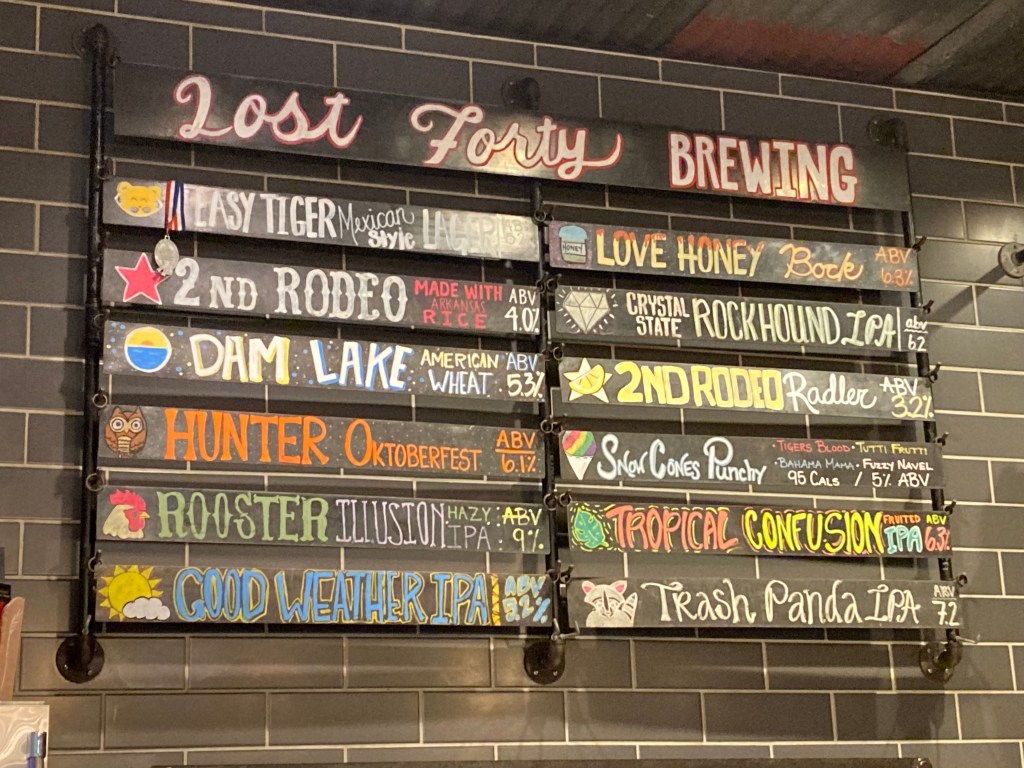 Lost Forty BREWING
EASY TIGER Mexican Style LAGER ABV
2ND RODEO MADE WITH ARKANSAS RICE ABV 4.0%
DAM LAKE AMERICAN WHEAT ABV 5.3%
HUNTER OKTOBERFEST ABV 6.1%
ROOSTER ILLUSION HAZY IPA ABV 9%
GOOD WEATHER IPA ABV
HONEY
LOVE HONEY Bock ABV 6.3%
CRYSTAL STATE ROCKHOUND IPA abv 6.2
2ND RODEO Radler ABV 3.2%
Snow Cones Punchy
• TIGERS BLOOD • TUTTI FRUTTI
• BAHAMA MAMA • FUZZY NAVEL
95 CALS / 5% ABV
TROPICAL CONFUSION FRUITED IPA ABV 6.3%
Trash Panda IPA ABV 7.2